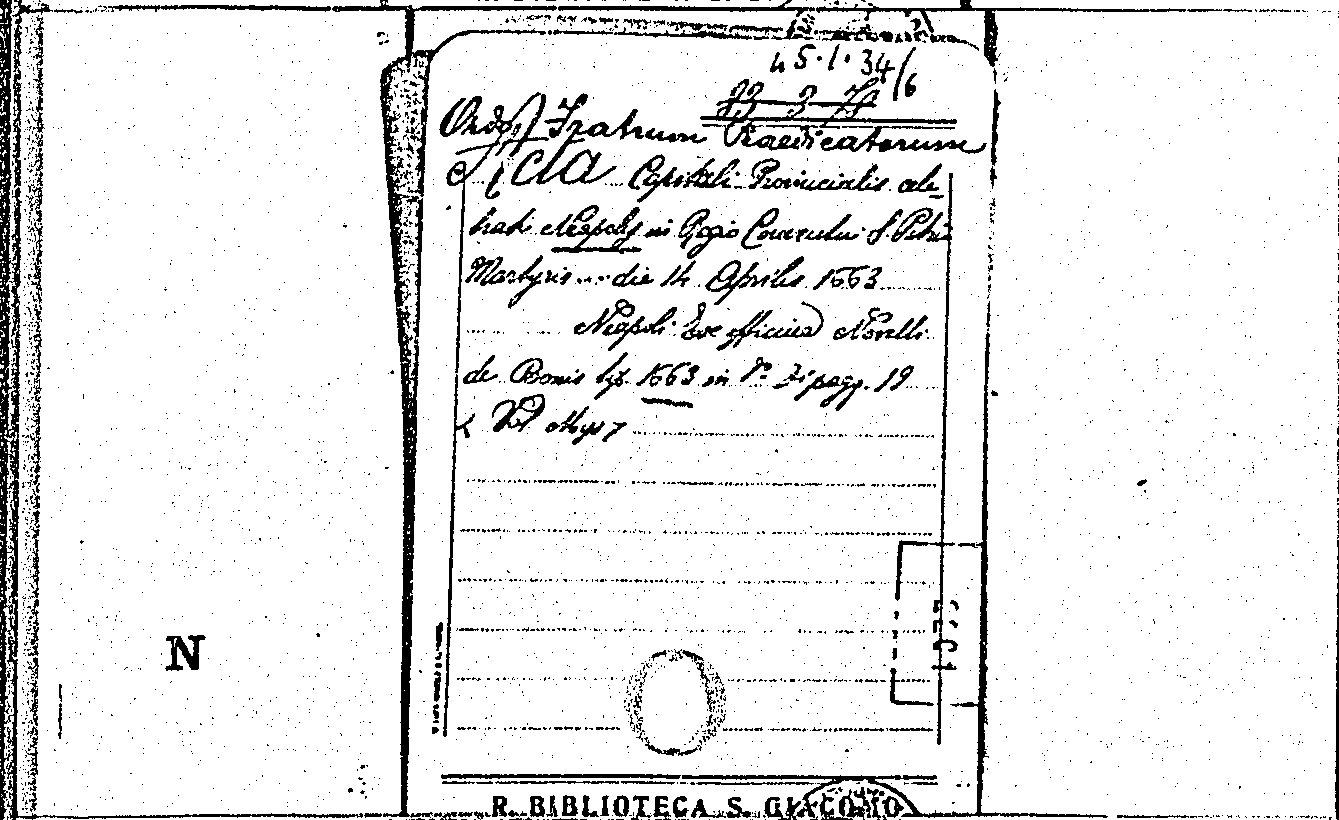 45.1.34/6
Ordo Fratrum Praedicatorum
Acta Capituli Provincialis cele-
brati Neapoly in Regio Conventui S. Petri
Martyris ... die 14 Aprilis 1663
Neapoli Ex officina Novelli
de Bonis typ. 1663 in 8° pagg. 19
N
R. BIBLIOTECA S. GIACOMO